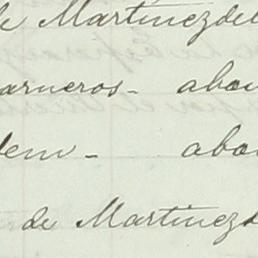 de Martinezdel
arneros - abou
dem - abou
de Martinezd